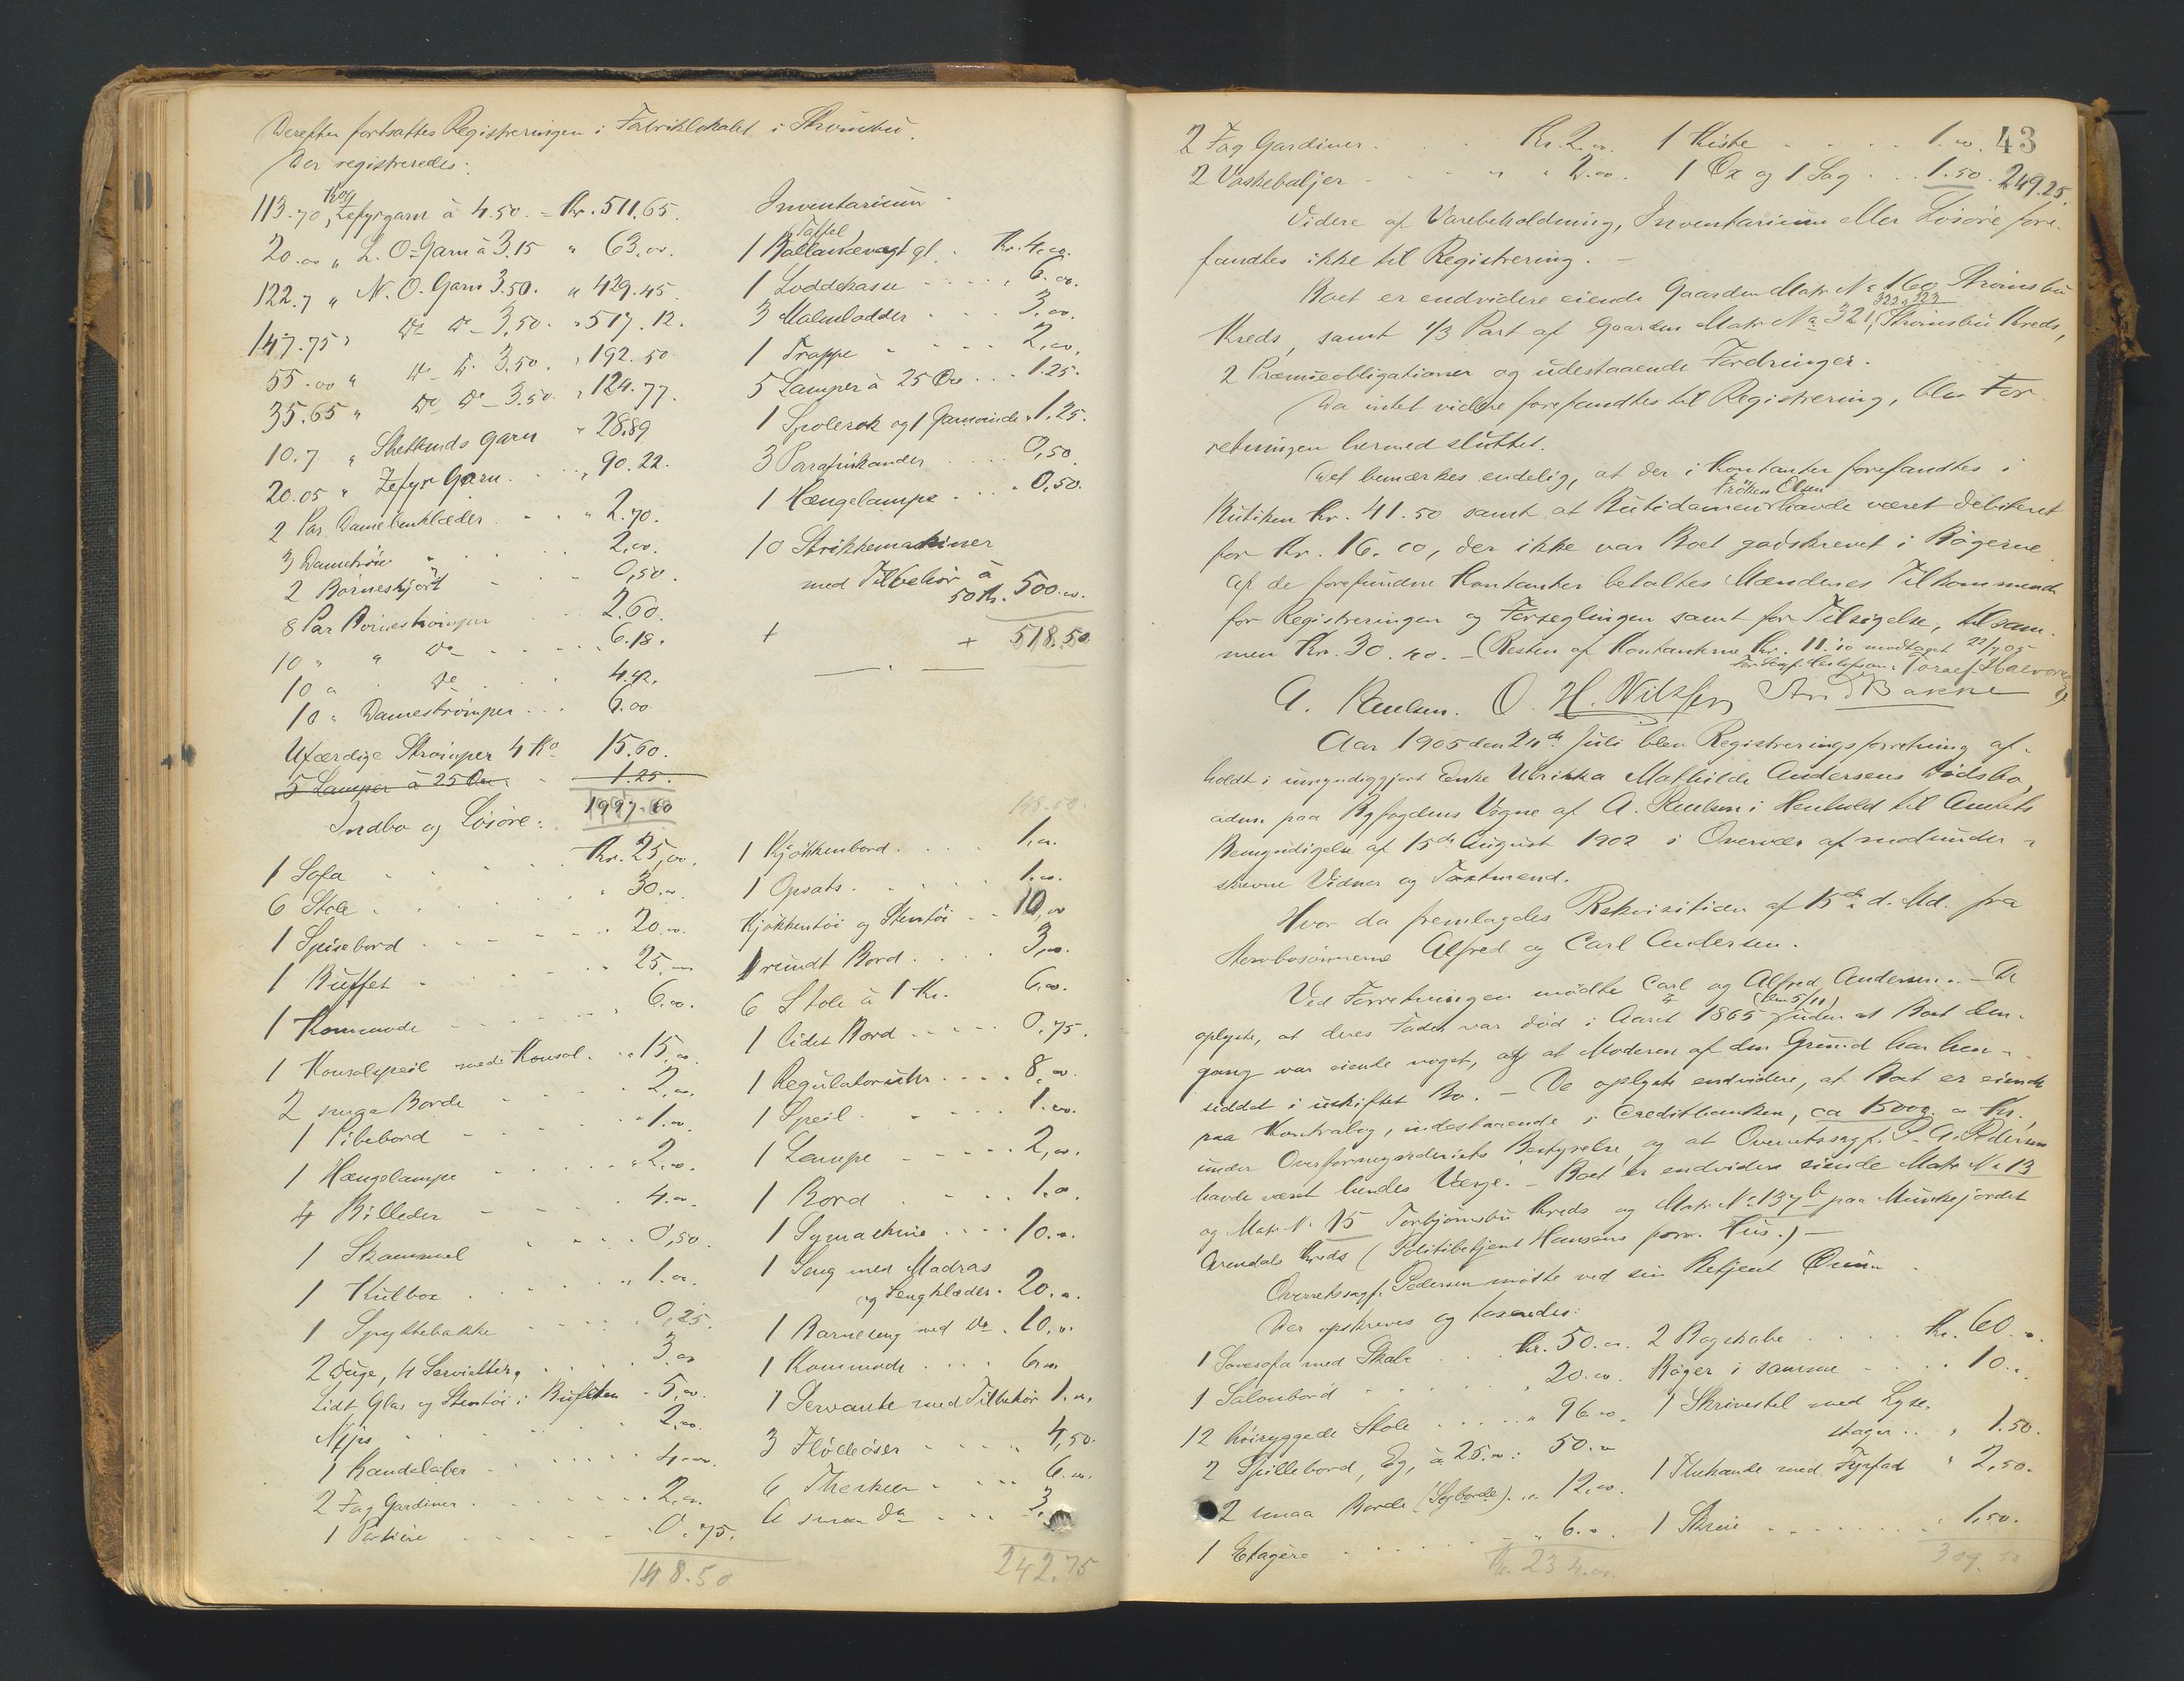 Derefter fortsattes Registreringen i Fabriklokalet i Strømsbu.
Der registreredes:
113.70 Kg Zefyrgarn à 4.50. = Kr. 511.65.
20.00 " L. O. Garn à 3.15 " 63.00.
122.7 " N. O. Garn 3.50. " 429.45.
147.75 " Do Do - 3.50. " 517.12.
55.00 " Do Do 3.50. " 192.50.
35.65 " Do Do - 3.50. " 124.77.
10.7 " Shetlands Garn " 28.89
20.05 " Zefyr Garn. . . " 90.22.
2 Par Damebenklæder . . " 2.70.
3 Dametrøie . . . 2.00.
2 Børneskjørt . . . 0,50.
8 Par Børnestrømper . . 2.60.
10 " " Do . . . 6.18.
10 " " Do . . . 4.92.
10 " Damestrømper . . . 6.00.
Ufærdige Strømper 4 Ko 15.60.
5 Lamper à 25 Øre . . 1.25.
1997.60
Inventarium.
1 Taffel Ballancevægt gl. . Kr. 4.00.
1 Loddekasse . . . . " 6.00.
3 Malmlodder . . . 3.00.
1 Trappe . . . . 2.00.
5 Lamper à 25 Øre . . . 1.25.
1 Spolerok og 1 Garnvinde " 1.25.
3 Parafinkander . . . . 0,50.
1 Hængelampe . . . . 0,50.
10 Strikkemaskiner
med Tilbehør à
50 Kr. 500.00.
+ + 518.50
Indbo og Løsøre:
1 Sofa . . . . Kr. 25,00.
6 Stole . . . . " 30.00
1 Spisebord . . . . " 20.00.
1 Buffet . . . . " 25,00
1 Kommode . . . . " 6.00.
1 Konsolspeil med Konsol. " 15,00.
2 smaa Borde . . . 2,00.
1 Pibebord . . . . " 1.00.
1 Hængelampe . . . . " 2,00.
4 Billeder . . . . 4.00
1 Skammel . . . . 0,50.
1 Kulbox . . . . " 1.00.
1 Spyttebakke . . . . 0,25.
2 Duge, 4 Servietter, . . . 3.00
Lidt Glas og Stentøi i Buffeten - 5,00.
Nips . . . . 2,00.
1 Kandelaber . . . . 4.00.
2 Fag Gardiner . . . . 2,00.
1 Portiere . . . . 0.75.
148.50
148.50
1 Kjøkkenbord . . . . 1.00.
1 Opsats . . . . 1.00.
Kjøkkentøi og Stentøi . . 10,00
1 rundt Bord . . . . 3,00.
6 Stole à 1 Kr. 6.00.
1 lidet Bord . . . . 0.75.
1 Regulatoruhr . . . . 8,00.
1 Speil . . . . 1.00.
1 Lampe . . . . 2,00.
1 Bord . . . . 1.00.
1 Symaskine . . . . 10.00.
1 Seng med Madras
og Sengklæder. 20.00.
1 Barneseng med Do . 10,00.
1 Kommode . . . . 6.00
1 Servante med Tilbehør 1.00.
3 Flødeøser . . . . " 4,50.
6 Theskeer . . . . 6.00.
6 smaa Do . . . . 3.
242.75
43
2 Fag Gardiner . . . Kr. 2.00. 1 Kiste . . . . 1.00.
2 Vaskebaljer . . . " " 2.00. 1 Øx og 1 Sag . . . 1.50. 249.25.
Videre af Varebeholdning, Inventarium eller Løsøre fore-
fandtes ikke til Registrering. -
Boet er endvidere eiende Gaarden Matr. No 160 Strømsbu
Kreds, samt 1/3 Part af Gaarden Matr. No 321, 322 & 323 Strømsbu Kreds,
2 Præmieobligationer og udestaaende Fordringer.
Da intet videre forefandtes til Registrering, blev For-
retningen hermed sluttet.
Det bemærkes endelig, at der i Kontanter forefandtes i
Butiken Kr. 41.50 samt at Butikdamen Frøken Olsen havde været debiteret
for Kr. 16.00, der ikke var Boet godskrevet i Bøgerne.
Af de forefundne Kontanter betaltes Mændenes Tilkommende
for Registreringen og Forseglingen samt for Tilsigelse, tilsam-
men Kr. 30.40. - (Resten af Kontanterne Kr. 11.10 modtaget 22/7 05
A. Paulsen. O. H. Nilssen
Aar 1905 den 24de Juli blev Registreringsforretning af-
holdt i umyndiggjort Enke Ulrikka Mathilde Andersens Dødsbo,
adm. paa Byfogdens Vegne af A. Paulsen i Henhold til Amtets
Bemyndigelse af 15de August 1902 i Overvær af medunder-
skrevne Vidner og Taxtmænd.
Hvor da fremlagdes Rekvisition af 15de d. Md. fra
Stervbosønnerne Alfred og Carl Andersen.
Ved Forretningen mødte Carl og Alfred Andersen. - De
oplyste, at deres Fader var død i Aaret 1865 (den 5/11) uden at Boet den-
gang var eiende noget, og at Moderen af den Grund har hen-
siddet i uskiftet Bo. - De oplyste endvidere, at Boet er eiende
paa Kontrabog, indestaaende i Creditbanken, ca 15000.00 Kr.,
under Overformynderiets Bestyrelse, og at Overretssagf. P. A. Pedersen
havde været hendes Værge. - Boet er endvidere eiende Matr. No 13
og Matr. No 15 Torbjørnsbu Kreds og Matr. No 137b paa Munkejordet
Arendals Kreds (Politibetjent Hansens forr. Hus.) -
Overretssagf. Pedersen mødte ved sin Betjent
Der opskreves og taxeredes:
1 Sovesofa med Skabe . . Kr. 50.00. 2 Bogskabe . . . . Kr. 60.00.
1 Salonbord . . . . " 20.00. Bøger i samme . . . . 10.00.
12 høiryggede Stole . . . . " 96.00. 1 Skrivestel med Lyse-
stager . . " 1.50.
2 Spillebord, Eg, à 25.00: 50.00
2 smaa Borde (Syborde). " 12.00. 1 Thekande med Fyrfad " 2,50.
1 Etagere . . . . " 6.00. 1 Skrin . . . . " 1,50.
Kr. 234.00. 309.50